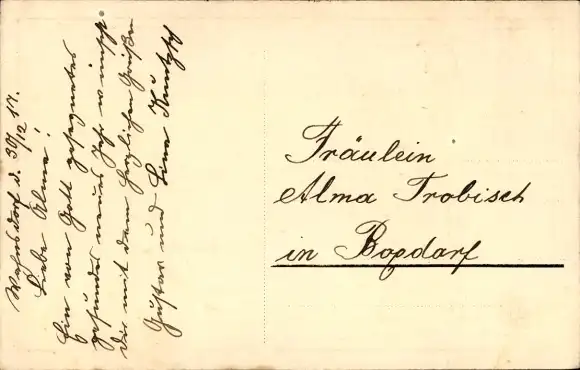 Wahrsdorf d. 30/12 17.
Liebe Alma!
Ein von Gott gesegnetes
gesundes neues Jahr wünscht
dir mit dem herzlichen Grüßen
Gustav und Lina
Fräulein
Alma Trobisch
in Bopdarf